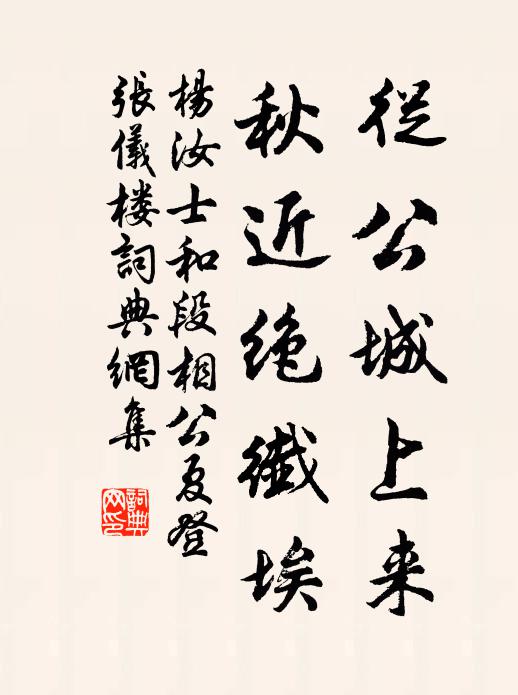 從公城上来
秋近絶纎埃
楊汝士和段相公夏登
張儀楼詞典網集
詞典网印